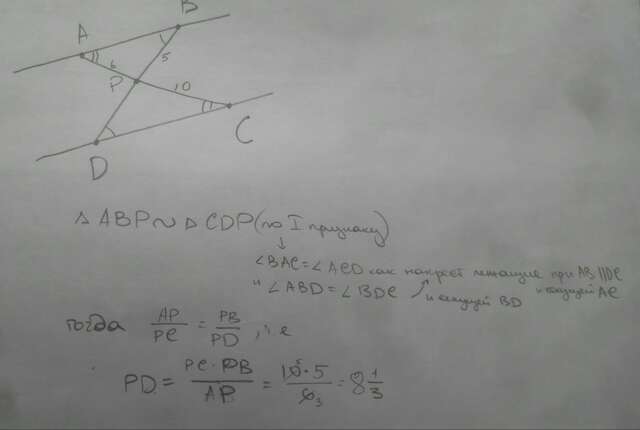 B
A
6
5
P
10
C
D
△ ABP ~ △ CDP (по I признаку)
↓
∠BAC = ∠ACD как накрест лежащие при AB || DC
и ∠ABD = ∠BDC и секущей BD и секущей AC
тогда AP/PC = PB/PD, т.е
PD = PC · PB / AP = 10⁵ · 5 / 6₃ = 8 1/3